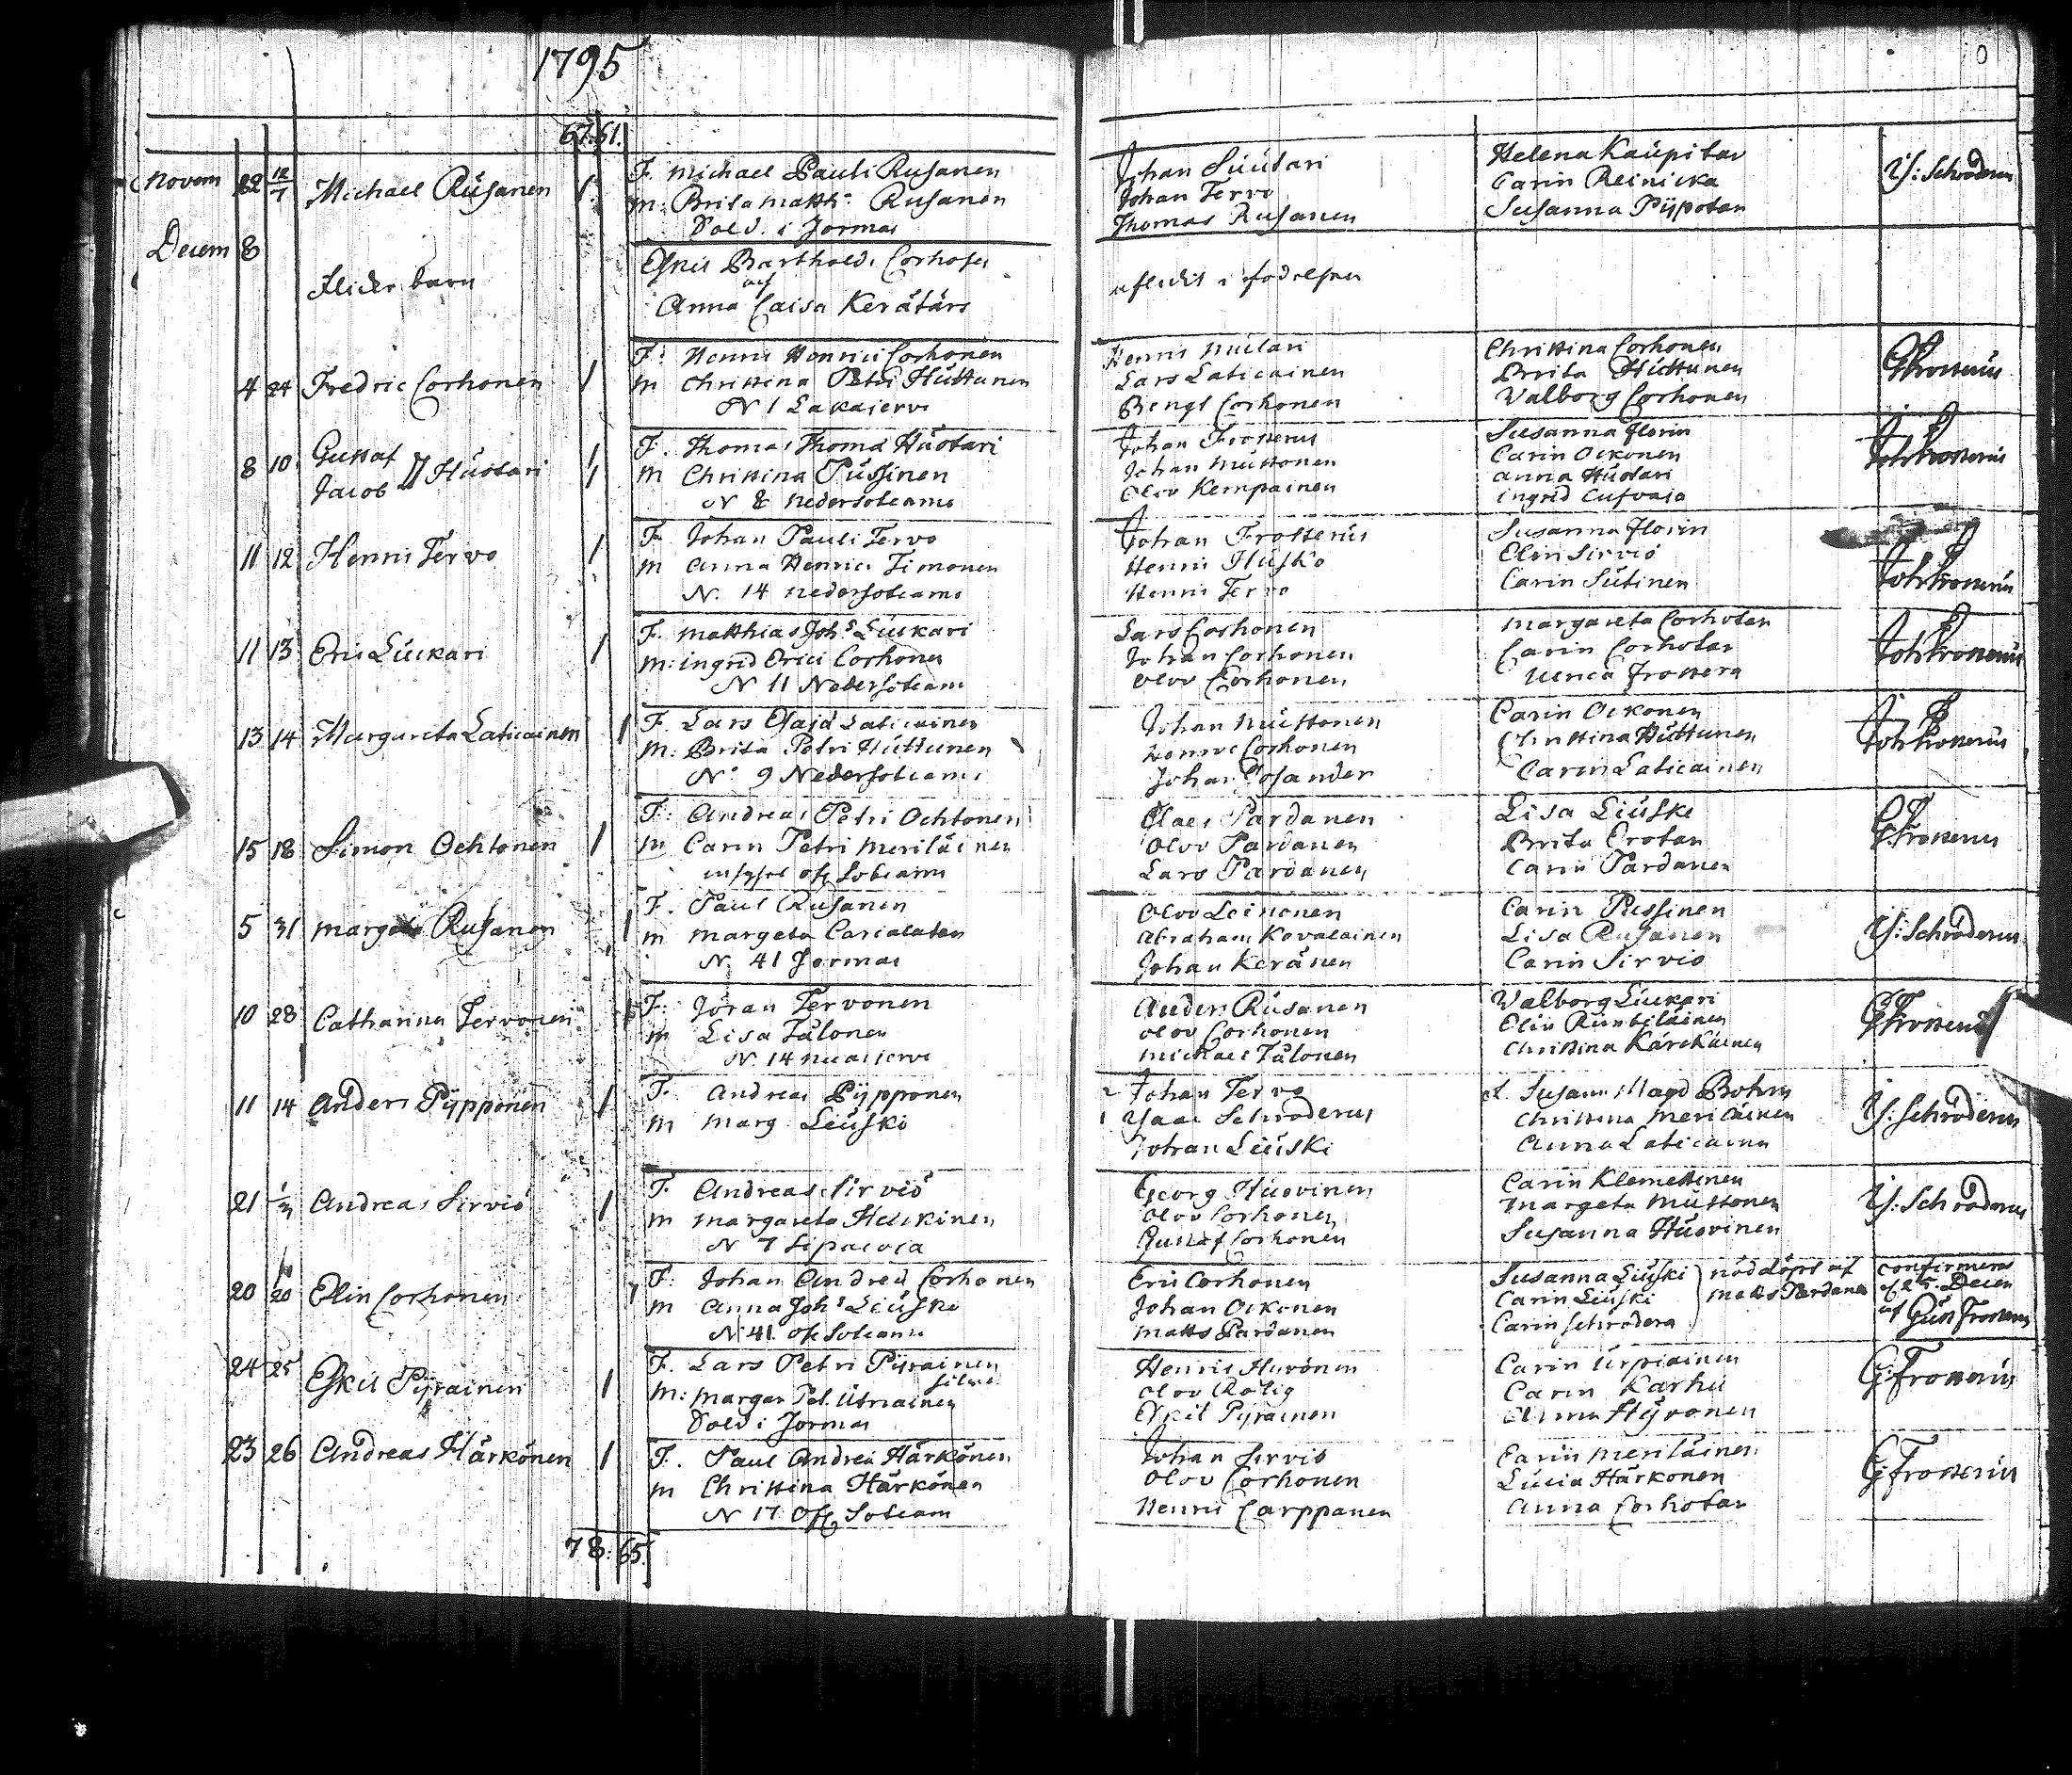 1795
67. 61.
Novem 22 12/7 Michael Rüsanen 1
F. Michael Pauli Rusanen
m: Brita Matth: Rusanen
Sold. i Jormas
Johan Süutari
Johan Tervo
Thomas Rusanen
Helena Kaupitar
Carin Reinicka
Susanna Pijpotar
Is: Schröderus
Decem 8
flicko barn
Barthold: Corhoses
af
Anna Caisa Kerätärs
afledit i födelsen
4 24 Fredric Corhonen 1
F: Henric Henrici Corhonen
m Christina Petri Hüttunen
N 1 Lakajervi
Henric
Lars Laticainen
Bengt Corhonen
Christina Corhonen
Brita Hüttunen
Valborg Corhonen
GFrosterüs
8 10 Gustaf
Jacob Hüotari 1 1
F. Thomas Thomæ Hüotari
m Christina Püssinen
N 8 Nedersotcamo
Johan Frosterus
Johan Müstonen
Olov Kempainen
Susanna Florin
Carin Oikonen
Anna Hüotari
Ingrid
Joh Frosterüs
11 12 Henric Tervo 1
F Johan Pauli Tervo
m Anna Henrici Timonen
N. 14 Nedersotcamo
Johan Frosterüs
Henric Hüsko
Henric Tervo
Susanna Florin
Elin Sirviö
Carin Sütinen
Joh Frosterüs
11 13 Eric Liükari 1
F. Matthias Johs Liükari
m: Ingrid Erici Corhonen
N 11 Nedersotcamo
Lars Corhonen
Johan Corhonen
Olov Corhonen
Margareta Corhotar
Carin Corhotar
Ulrica Frostera
Joh Frosterüs
13 14 Margareta Laticainen 1
F. Lars Esaiæ Laticainen
m: Brita Petri Hüttunen
No 9 Nedersotcamo
Johan Müstonen
Henric Corhonen
Johan
Carin Oikonen
Christina Hüttunen
Carin Laticainen
Joh Frosterüs
15 18 Simon Ochtonen 1
F: Andreas Petri Ochtonen
m Carin Petri Meriläinen
öfv Sotcamo
Claes Pardanen
Olov Pardanen
Lars Pardanen
Lisa Liüski
Brita Crotar
Carin Pardanen
GFrosterus
5 31 Margeta Rusanen 1
F. Paul Rusanen
m Margeta Carialatar
N. 41 Jormas
Olov Leinonen
Abraham Kovalainen
Johan Keränen
Carin Püssinen
Lisa Rusanen
Carin Sirviö
Is: Schröderus
10 28 Catharina Tervonen 1
F: Jöran Tervonen
m Lisa Talonen
N. 14
Anders Rüsanen
Olov Corhonen
Michael Talonen
Valborg Liükari
Elin
Christina Kärckäinen
GFrosterüs
11 14 Anders Pijpponen 1
F. Andreas Pijpponen
m Marg: Leüski
2 Johan Tervo
1 Isaac Schröderus
Johan Leüski
Susann Magd Bohm
Christina Meriläinen
Anna Laticainen
Is: Schröderus
21 Andreas Sirviö 1
F. Andreas Sirviö
m Margareta Heickinen
N 7 Sipaivoia
Georg Hüovinen
Olov Corhonen
Gustaf Corhonen
Carin Klemettinen
Margeta Müstonen
Susanna Hüovinen
Is: Schröderus
20 20 Elin Corhonen 1
F: Johan Andreæ Corhonen
m Anna Johs Leüski
N 41 öfv Sotcamo
Eric Corhonen
Johan Oikonen
Matts Pardanen
Susanna Liüski
Carin Liüski
Carin Schrodera
nöd döpt af
Matts Pardanen
confirmeras
d 25 Decem
af Güst Frosterus
24 25 Eskil Pijrainen 1
F. Lars Petri Pijrainen
m: Margar Pet. Utriainen
Sold i Jormas
Henric Huvönen
Olov Rolig
Eskil Pijrainen
Carin Urpiainen
Carin Karhu
Anna Hÿvönen
GFrosterüs
23 26 Andreas Härkönen 1
F. Paul Andreæ Härkönen
m Christina Härkönen
N 17 Öfv Sotcam
Johan Sirviö
Olov Corhonen
Henric Carppanen
Carin Meriläinen
Lucia Härkonen
Anna Corhotar
GFrosterüs
78. 65.